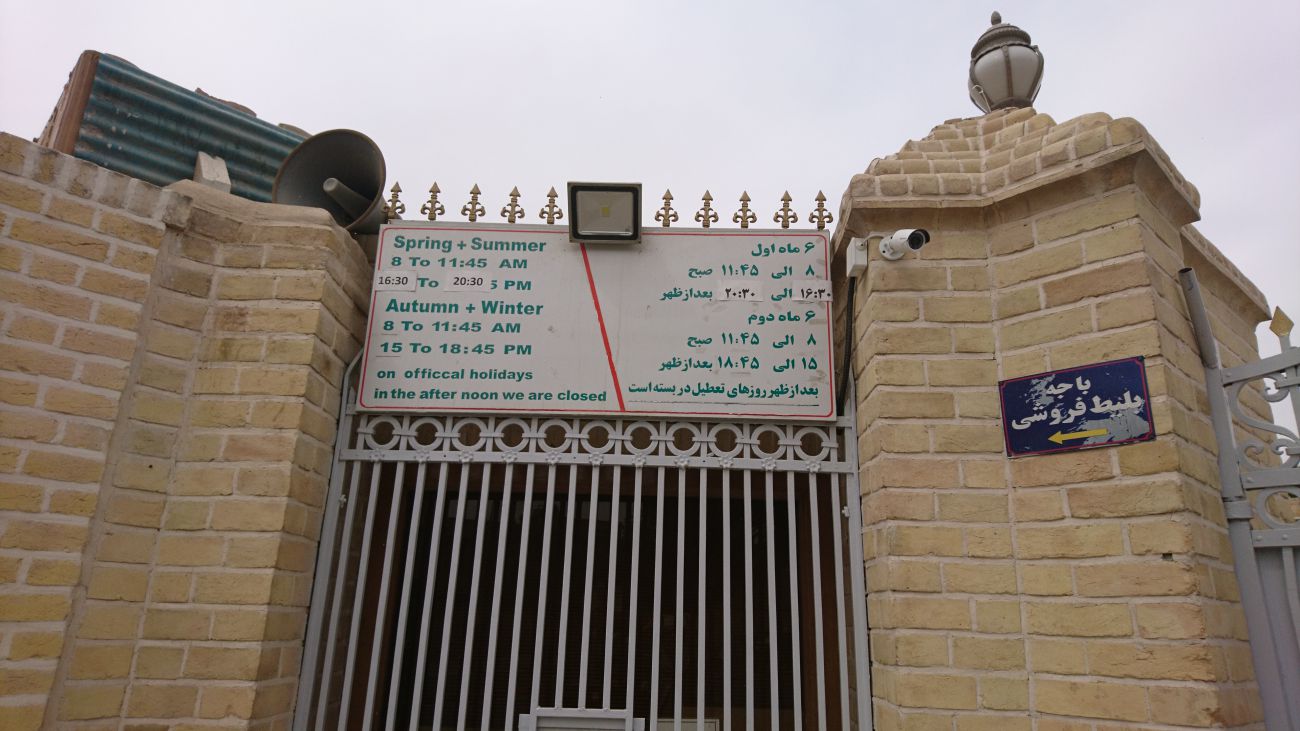 Spring + Summer
8 To 11:45 AM
16:30 To 20:30 5 PM
Autumn + Winter
8 To 11:45 AM
15 To 18:45 PM
on officcal holidays
in the after noon we are closed
۶ ماه اول
۸ الی ۱۱:۴۵ صبح
۱۶:۳۰ الی ۲۰:۳۰ بعدازظهر
۶ ماه دوم
۸ الی ۱۱:۴۵ صبح
۱۵ الی ۱۸:۴۵ بعدازظهر
بعدازظهر روزهای تعطیل در بسته است
باجه
بلیط فروشی